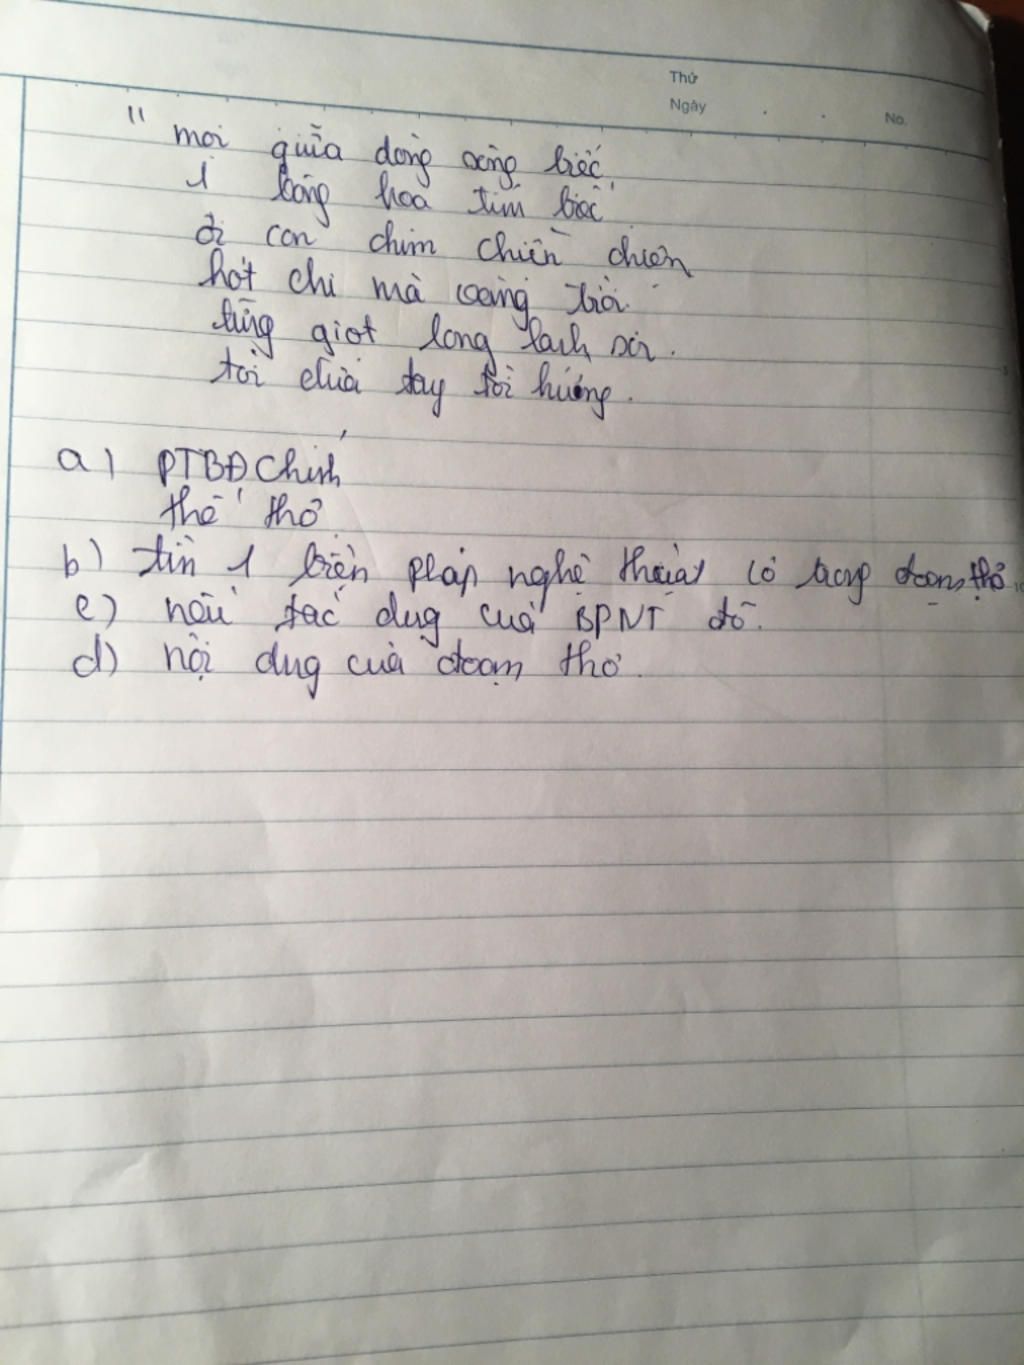 Thứ
Ngày . . No.
" mọi giữa dòng sông biếc
1 bông hoa tím biếc
ơi con chim chiền chiện
hót chi mà vang trời
từng giọt long lanh rơi.
tôi đưa tay tôi hứng.
a) PTBĐ Chính
thể thơ
b) tìm 1 biện pháp nghệ thuật có trong đoạn thơ
c) nêu tác dụg của BPNT đó.
d) nội dug của đoạn thơ.